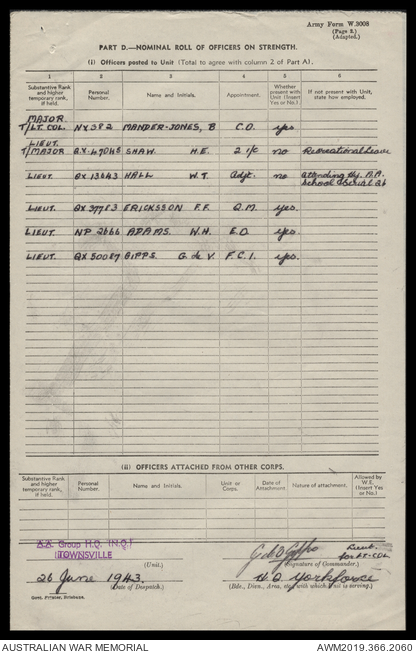 Army Form W.3008
(Page 2.)
(Adapted.)
PART D.—NOMINAL ROLL OF OFFICERS ON STRENGTH.
(i) Officers posted to Unit (Total to agree with column 2 of Part A).
1 2 3 4 5 6
Substantive Rank and higher temporary rank, if held. Personal Number. Name and Initials. Appointment. Whether present with Unit (Insert Yes or No.) If not present with Unit, state how employed.
MAJOR
T/LT. COL. NX382 MANDER-JONES, B C.O. yes
LIEUT.
T/MAJOR QX 47048 SHAW. H.E. 2 i/c no Recreational Leave
LIEUT. QX 13643 HALL W.T. Adjt. no attending Hy. A.A. School Serial 26
LIEUT. QX 37783 ERICKSSON F.F. Q.M. yes.
LIEUT. NP 2666 ADAMS. W.H. E.O. yes.
LIEUT. QX 50087 GIPPS. G de V. F.C.I. yes.
(ii) OFFICERS ATTACHED FROM OTHER CORPS.
Substantive Rank and higher temporary rank, if held. Personal Number. Name and Initials. Unit or Corps. Date of Attachment Nature of attachment. Allowed by W.E. (Insert Yes or No.)
A.A. Group H.Q. (N.Q.)
TOWNSVILLE
(Unit.)
Lieut.
for LT-COL
(Signature of Commander.)
26 June 1943.
(Date of Despatch.)
H.Q. Yorkforce
(Bde., Divn., Area, etc., with which Unit is serving.)
Govt. Printer, Brisbane.
AUSTRALIAN WAR MEMORIAL AWM2019.366.2060